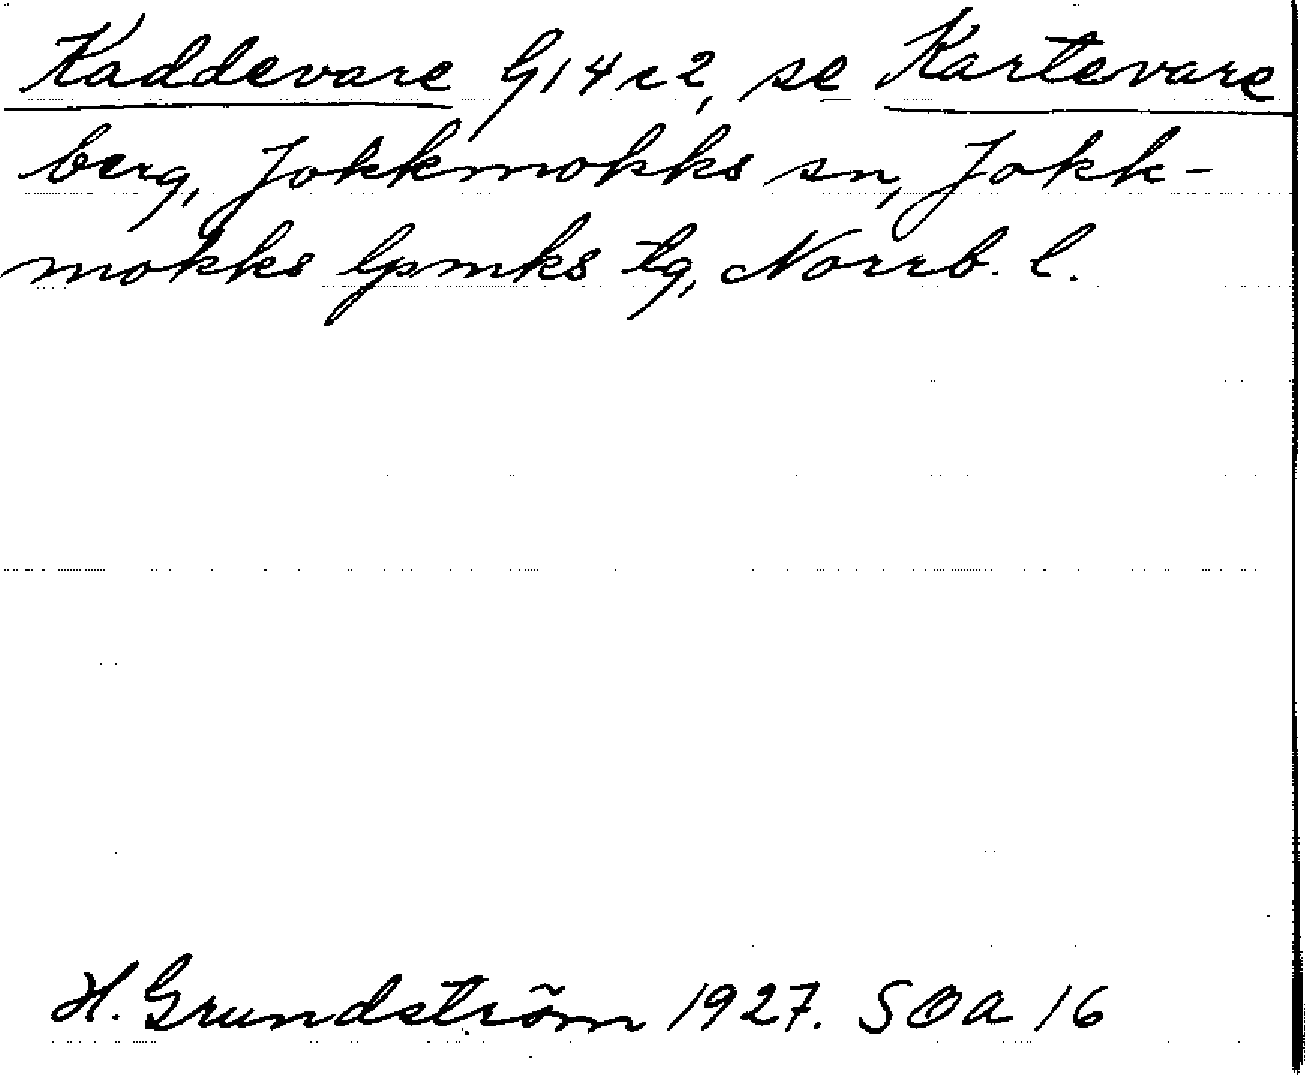 Kaddevare G14c2, se Kartevare
berg, Jokkmokks sn, Jokk-
mokks lpmks tg, Norrb. l.
H. Grundström 1927. SOA 16